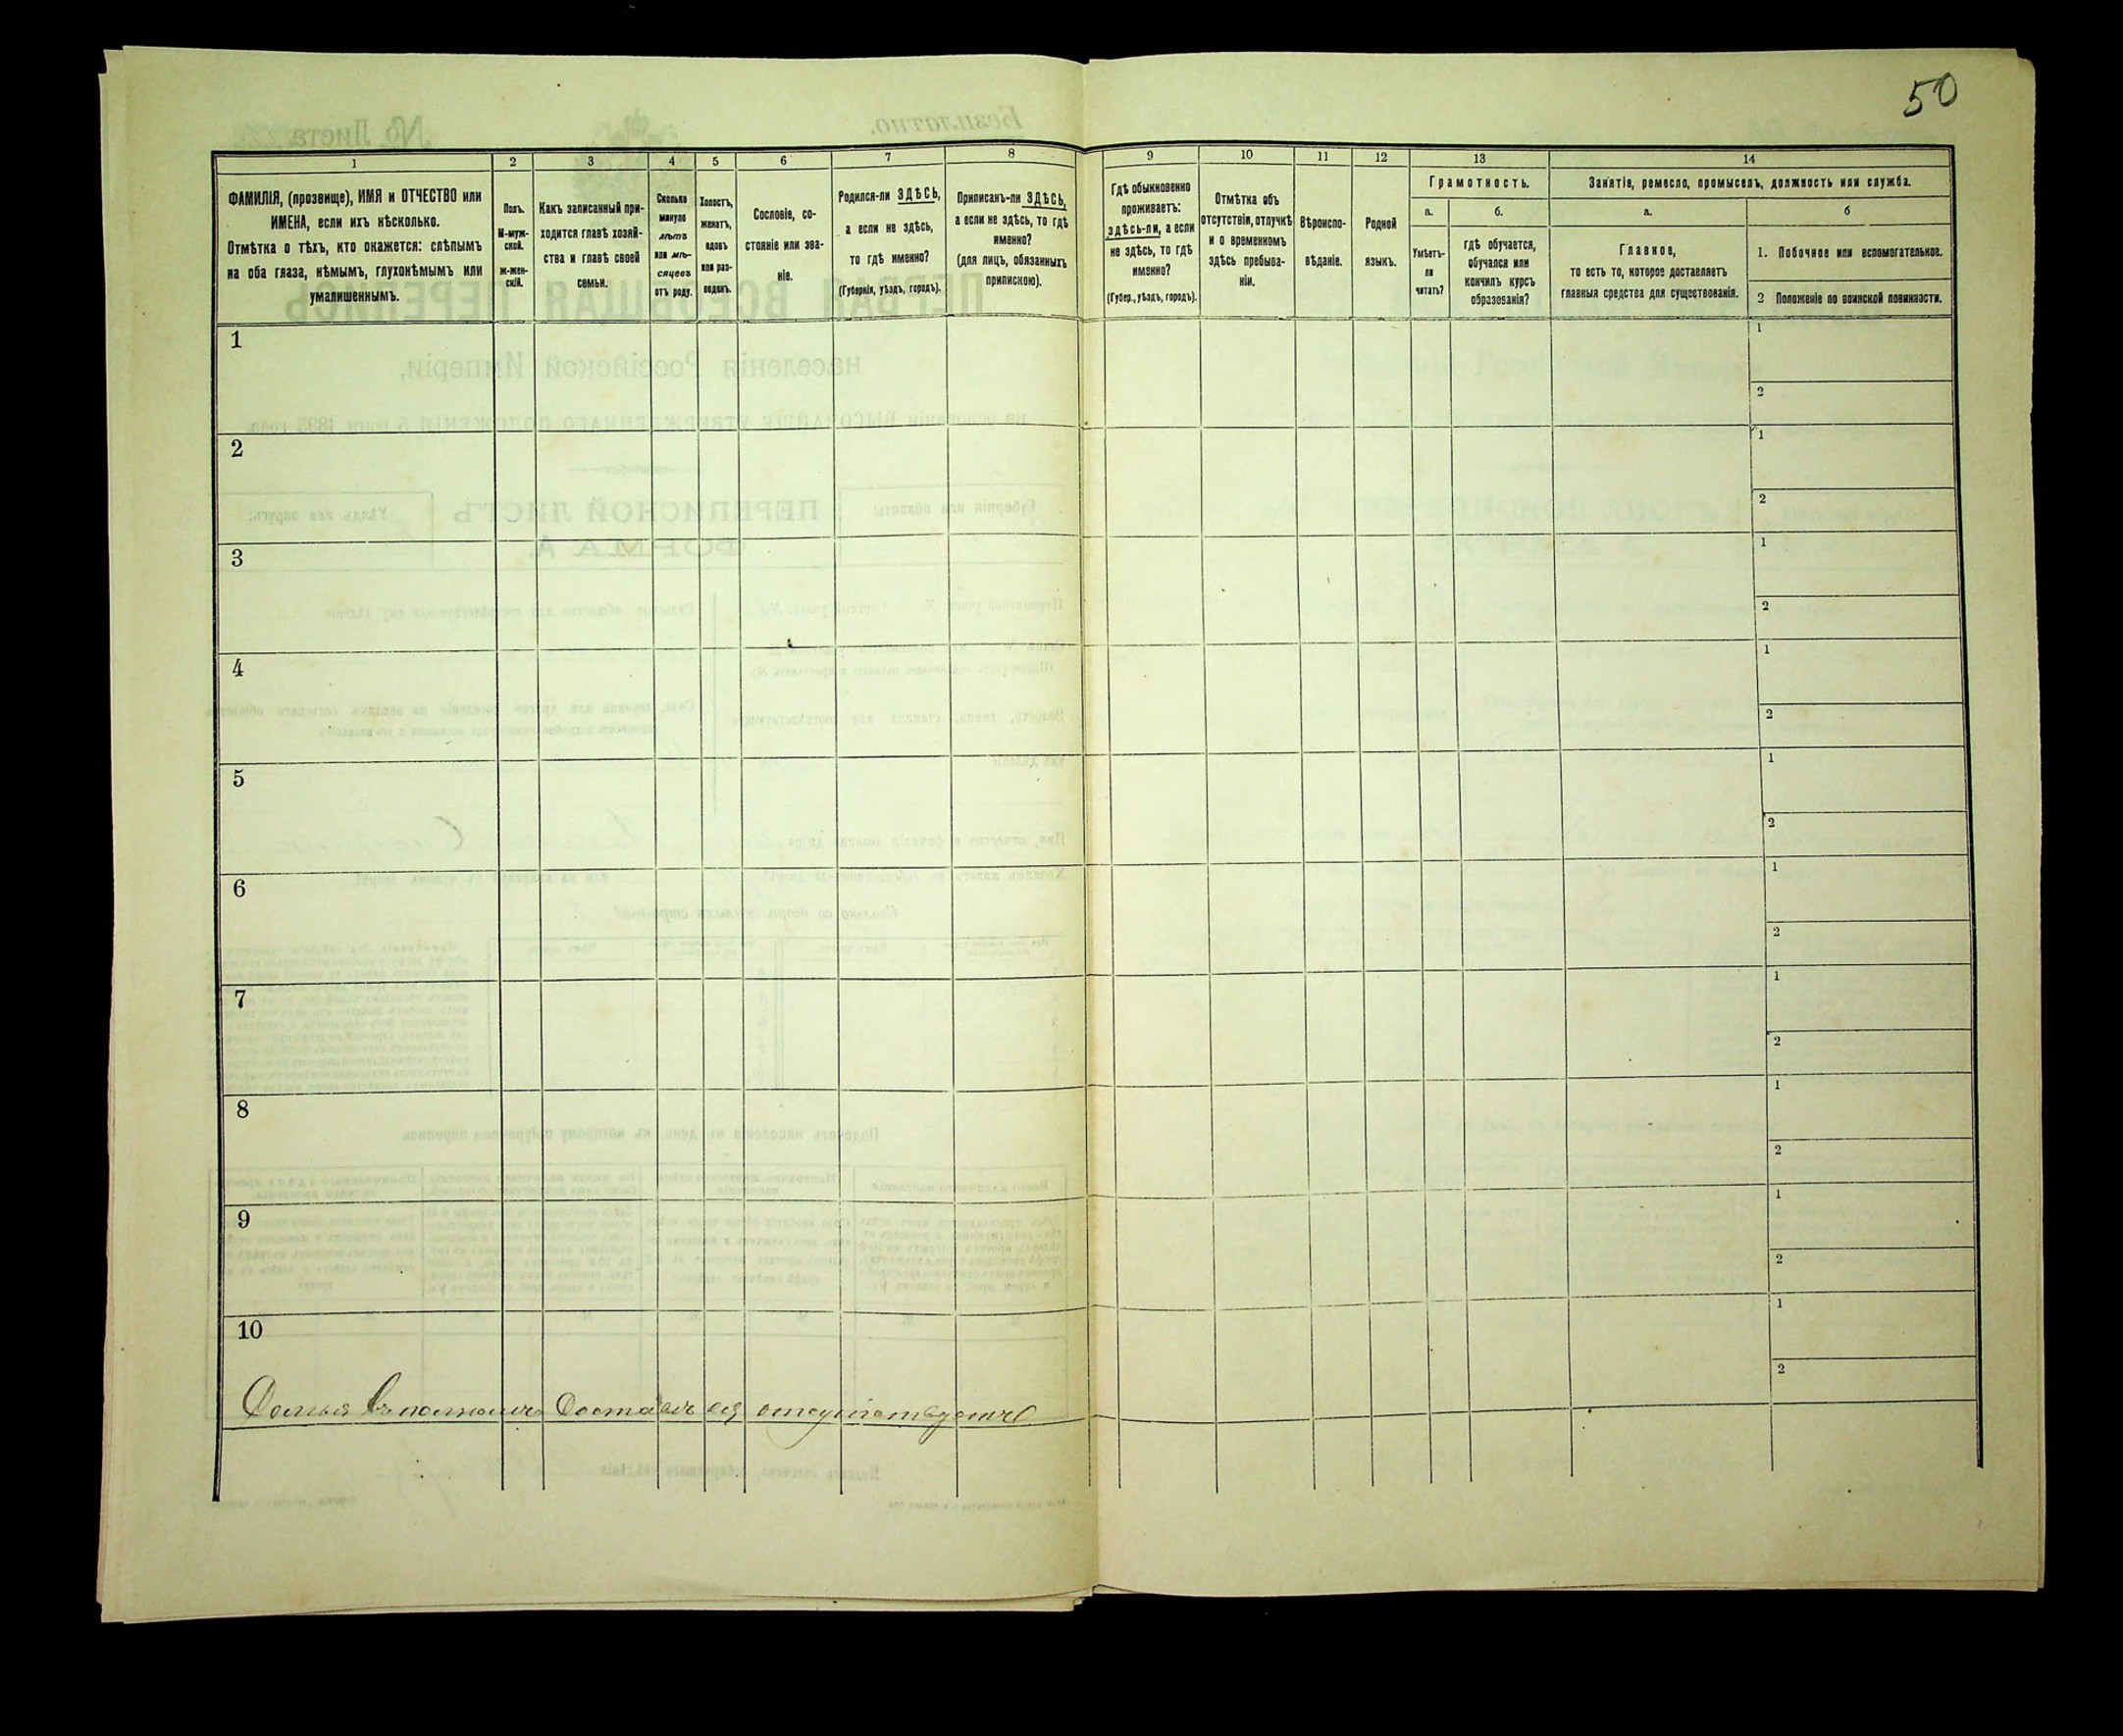 50
1 2 3 4 5 6 7 8 9 10 11 12 13 14
ФАМИЛІЯ, (прозвище), ИМЯ и ОТЧЕСТВО или
ИМЕНА, если ихъ нѣсколько.
Отмѣтка о тѣхъ, кто окажется: слѣпымъ
на оба глаза, нѣмымъ, глухонѣмымъ или
умалишеннымъ.
Полъ.
М-муж-
ской.
Ж-жен-
скій.
Какъ записанный при-
ходится главѣ хозяй-
ства и главѣ своей
семьи.
Сколько
минуло
лѣтъ
или мѣ-
сяцевъ
отъ роду.
Холостъ,
женатъ,
вдовъ
или раз-
веденъ.
Сословіе, со-
стояніе или зва-
ніе.
Родился-ли ЗДѢСЬ,
а если не здѣсь,
то гдѣ именно?
(Губернія, уѣздъ, городъ).
Приписанъ-ли ЗДѢСЬ,
а если не здѣсь, то гдѣ
именно?
(для лицъ, обязанныхъ
припискою).
Гдѣ обыкновенно
проживаетъ:
здѣсь-ли, а если
не здѣсь, то гдѣ
именно?
(Губер., уѣздъ, городъ).
Отмѣтка объ
отсутствіи, отлучкѣ
и о временномъ
здѣсь пребыва-
ніи.
Вѣроиспо-
вѣданіе.
Родной
языкъ.
Грамотность.
а.
Умѣетъ-
ли
читать?
б.
гдѣ обучается,
обучался или
кончилъ курсъ
образованія?
Занятіе, ремесло, промыселъ, должность или служба.
а.
Главное,
то есть то, которое доставляетъ
главныя средства для существованія.
б
1. Побочное или вспомогательное.
2 Положеніе по воинской повинности.
1
1
2
2
1
2
3
1
2
4
1
2
5
1
2
6
1
2
7
1
2
8
1
2
9
1
2
10
1
2
Семья въ полномъ Составѣ отсутствуетъ